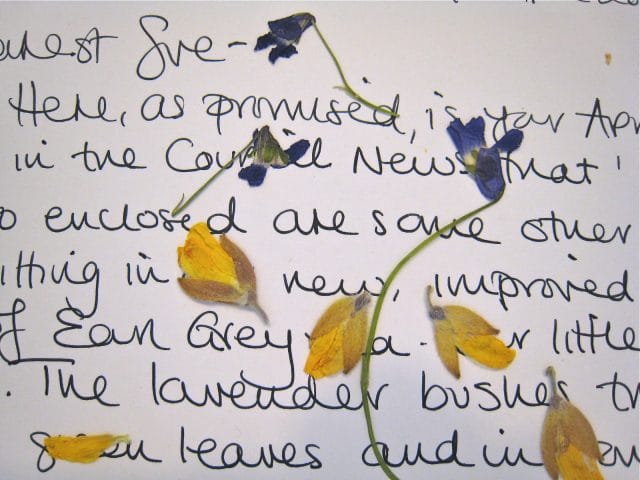 anest Sve-
Here, as promised, is your Apr
in the Council News that
o enclosed are some other
itting in new, improved
of Earl Grey a. r little
. The lavender bushes th
green leaves and in